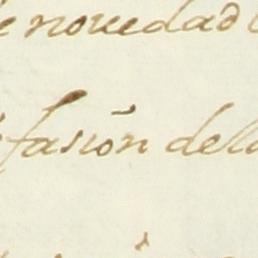 novedad
fasión dela